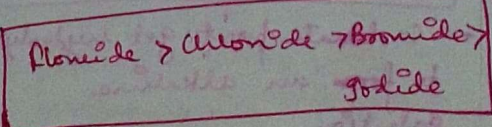 Floride > Chloride > Bromide >
Iodide